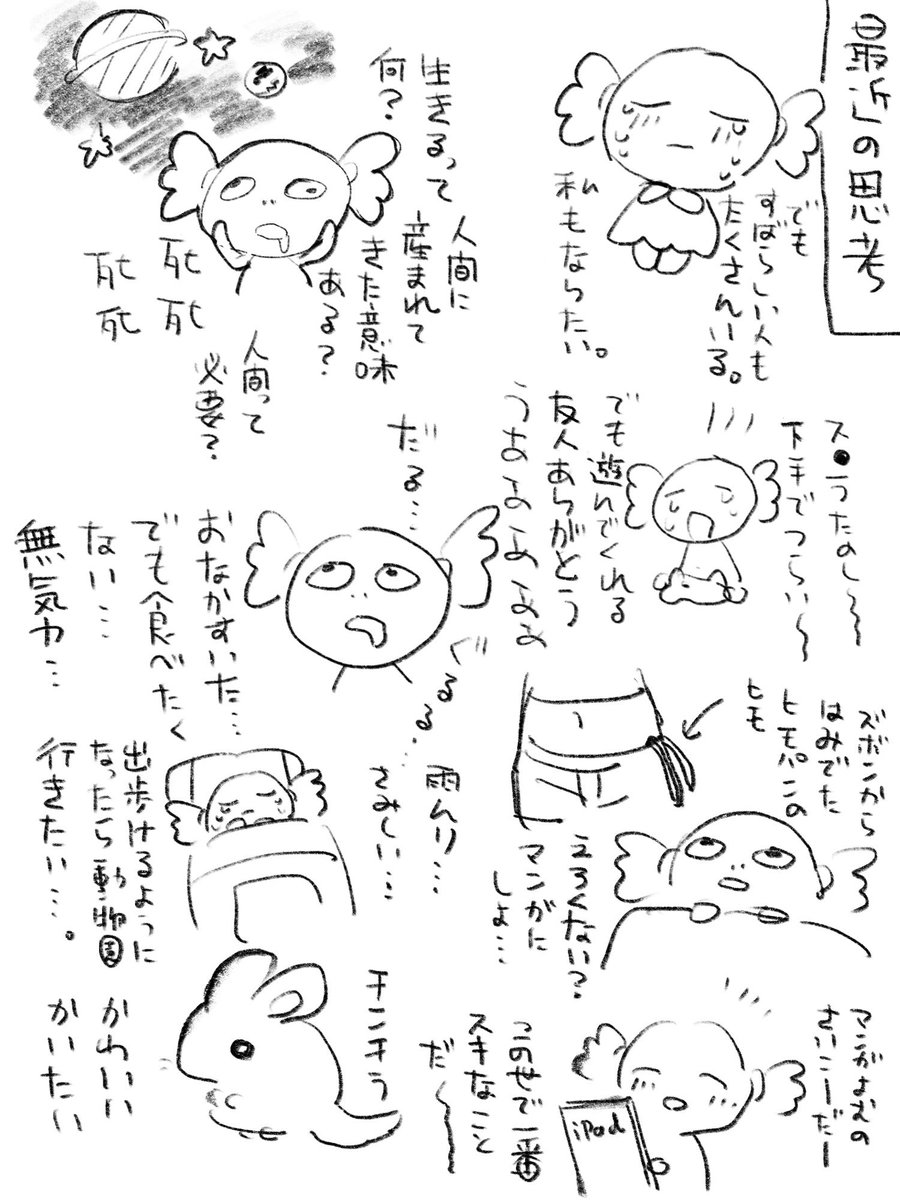 最近の思考
でも
すばらしい人も
たくさんいる。
私もなりたい。
生きるって
何?
人間に
産まれて
きた意味
ある?
死
死
死
死
人間って
必要?
ス●うたのし〜〜
下手でつらい〜
でも遊んでくれる
友人ありがとう
うおおおおお
だる…
おなかすいた…
でも食べたく
ない…
無気力…
ぐるる…
ズボンから
はみでた
ヒモパンの
ヒモ
えろくない?
マンガに
しよ…
雨んり…
さみしい…
出歩けるように
なったら動物園
行きたい…。
マンガよむの
さいこーだー
iPad
この世で一番
スキなこと
だ〜〜
チンチラ
かわいい
かいたい